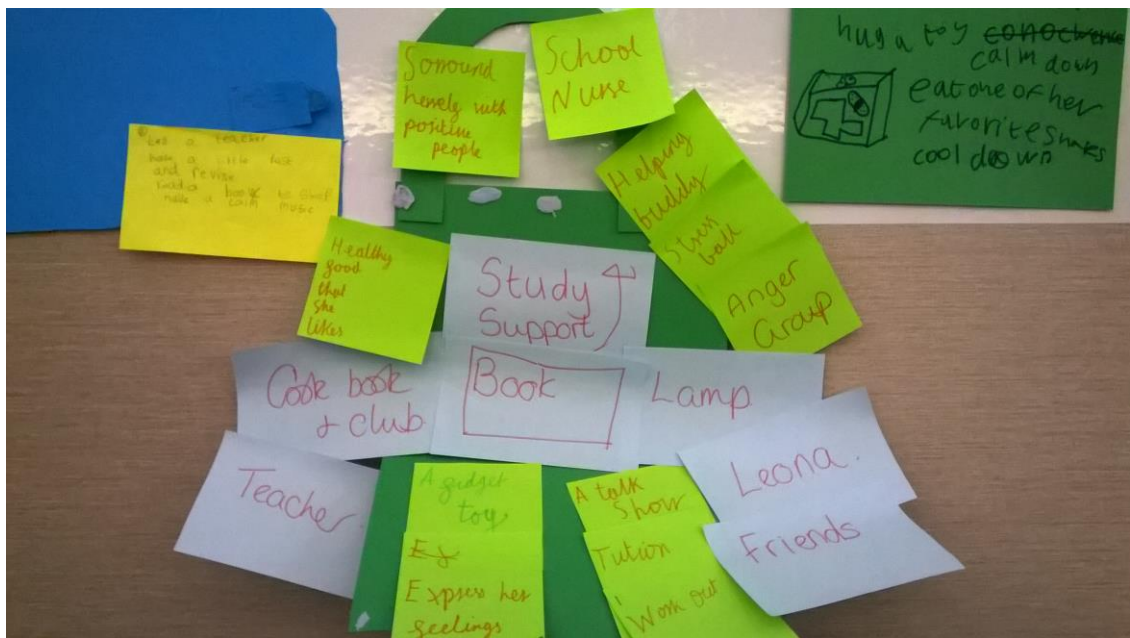 hug a toy conocturne
calm down
eat one of her
favorite snaks
cool down
Sorround
herself with
positive
people
School
Nurse
Helping
buddy
Stress
ball
Anger
Group
a teacher
have a little
and revise
book
make a calm music
Healthy
good
that
she
likes
Study
Support
Cook book
+ club
Book
Lamp
Teacher
Leona.
Friends
A gidget
toy
Ex
Express her
geelings
A talk
Show
Tution
Work out